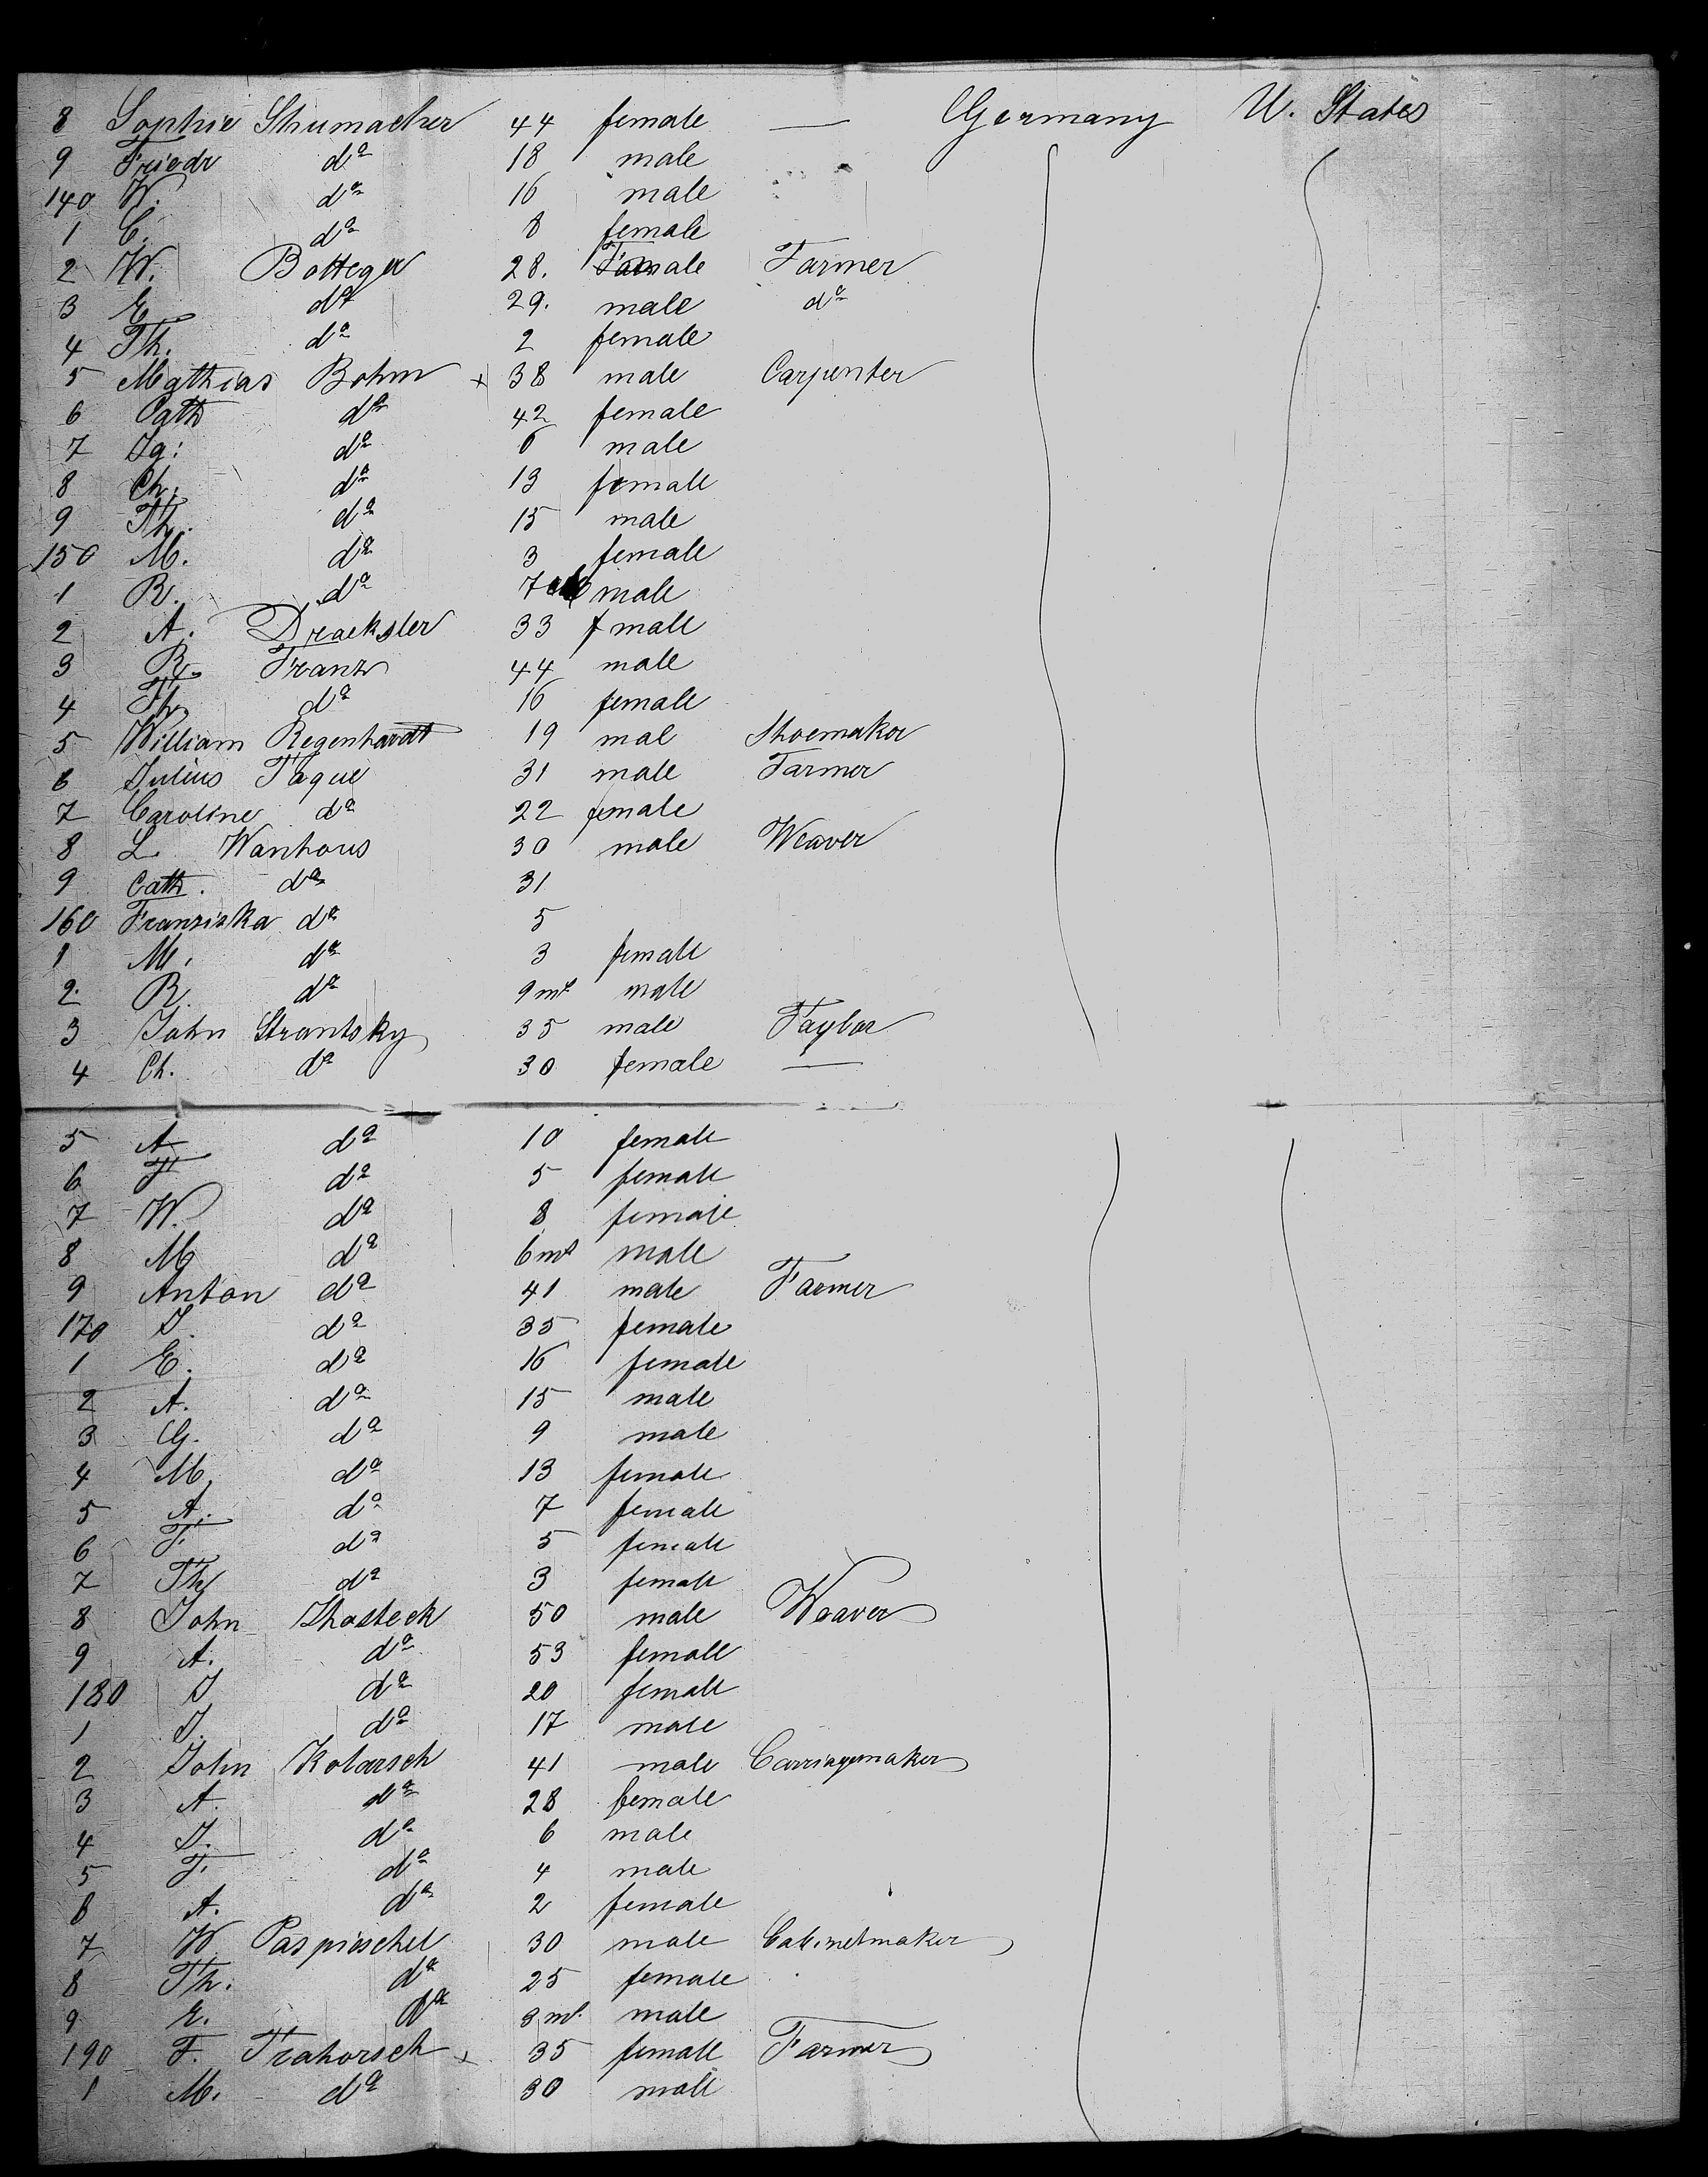 8 Sophie Shumacher 44 female — Germany U. States
9 Friedr do 18 male
140 W. do 16 male
1 C. do 8 female
2 W. Botteger 28. male Farmer
3 E do 29. male do
4 Th. do 2 female
5 Mathias Bohm x 38 male Carpenter
6 Cath do 42 female
7 Ig: do 6 male
8 Ch. do 13 female
9 Th. do 15 male
150 M. do 3 female
1 R. do 7 male
2 A. Dracksler 33 f male
3 R. Franz 44 male
4 Th. do 16 female
5 William Regenhardt 19 mal Shoemaker
6 Julius Taque 31 male Farmer
7 Caroline do 22 female
8 L. Wanhous 30 male Weaver
9 Cath. do 31
160 Franziska do 5
1 M. do 3 female
2 R. do 9 ms male
3 John Strantsky 35 male Taylor
4 Ch. do 30 female —
5 A do 10 female
6 F do 5 female
7 W. do 8 female
8 M do 6 ms male
9 Anton do 41 male Farmer
170 J. do 35 female
1 E. do 16 female
2 A. do 15 male
3 G. do 9 male
4 M. do 13 female
5 A. do 7 female
6 F. do 5 female
7 Th do 3 female
8 John Shosteck 50 male Weaver
9 A. do 53 female
180 J do 20 female
1 J. do 17 male
2 John Kolarsch 41 male Carriagemaker
3 A. do 28 female
4 J. do 6 male
5 F. do 4 male
6 A. do 2 female
7 W. Paspieschel 30 male Cabinetmaker
8 Th. do 25 female
9 E. do 3 ms. male
190 F. Trahorsch x 35 female Farmer
1 M. do 30 male